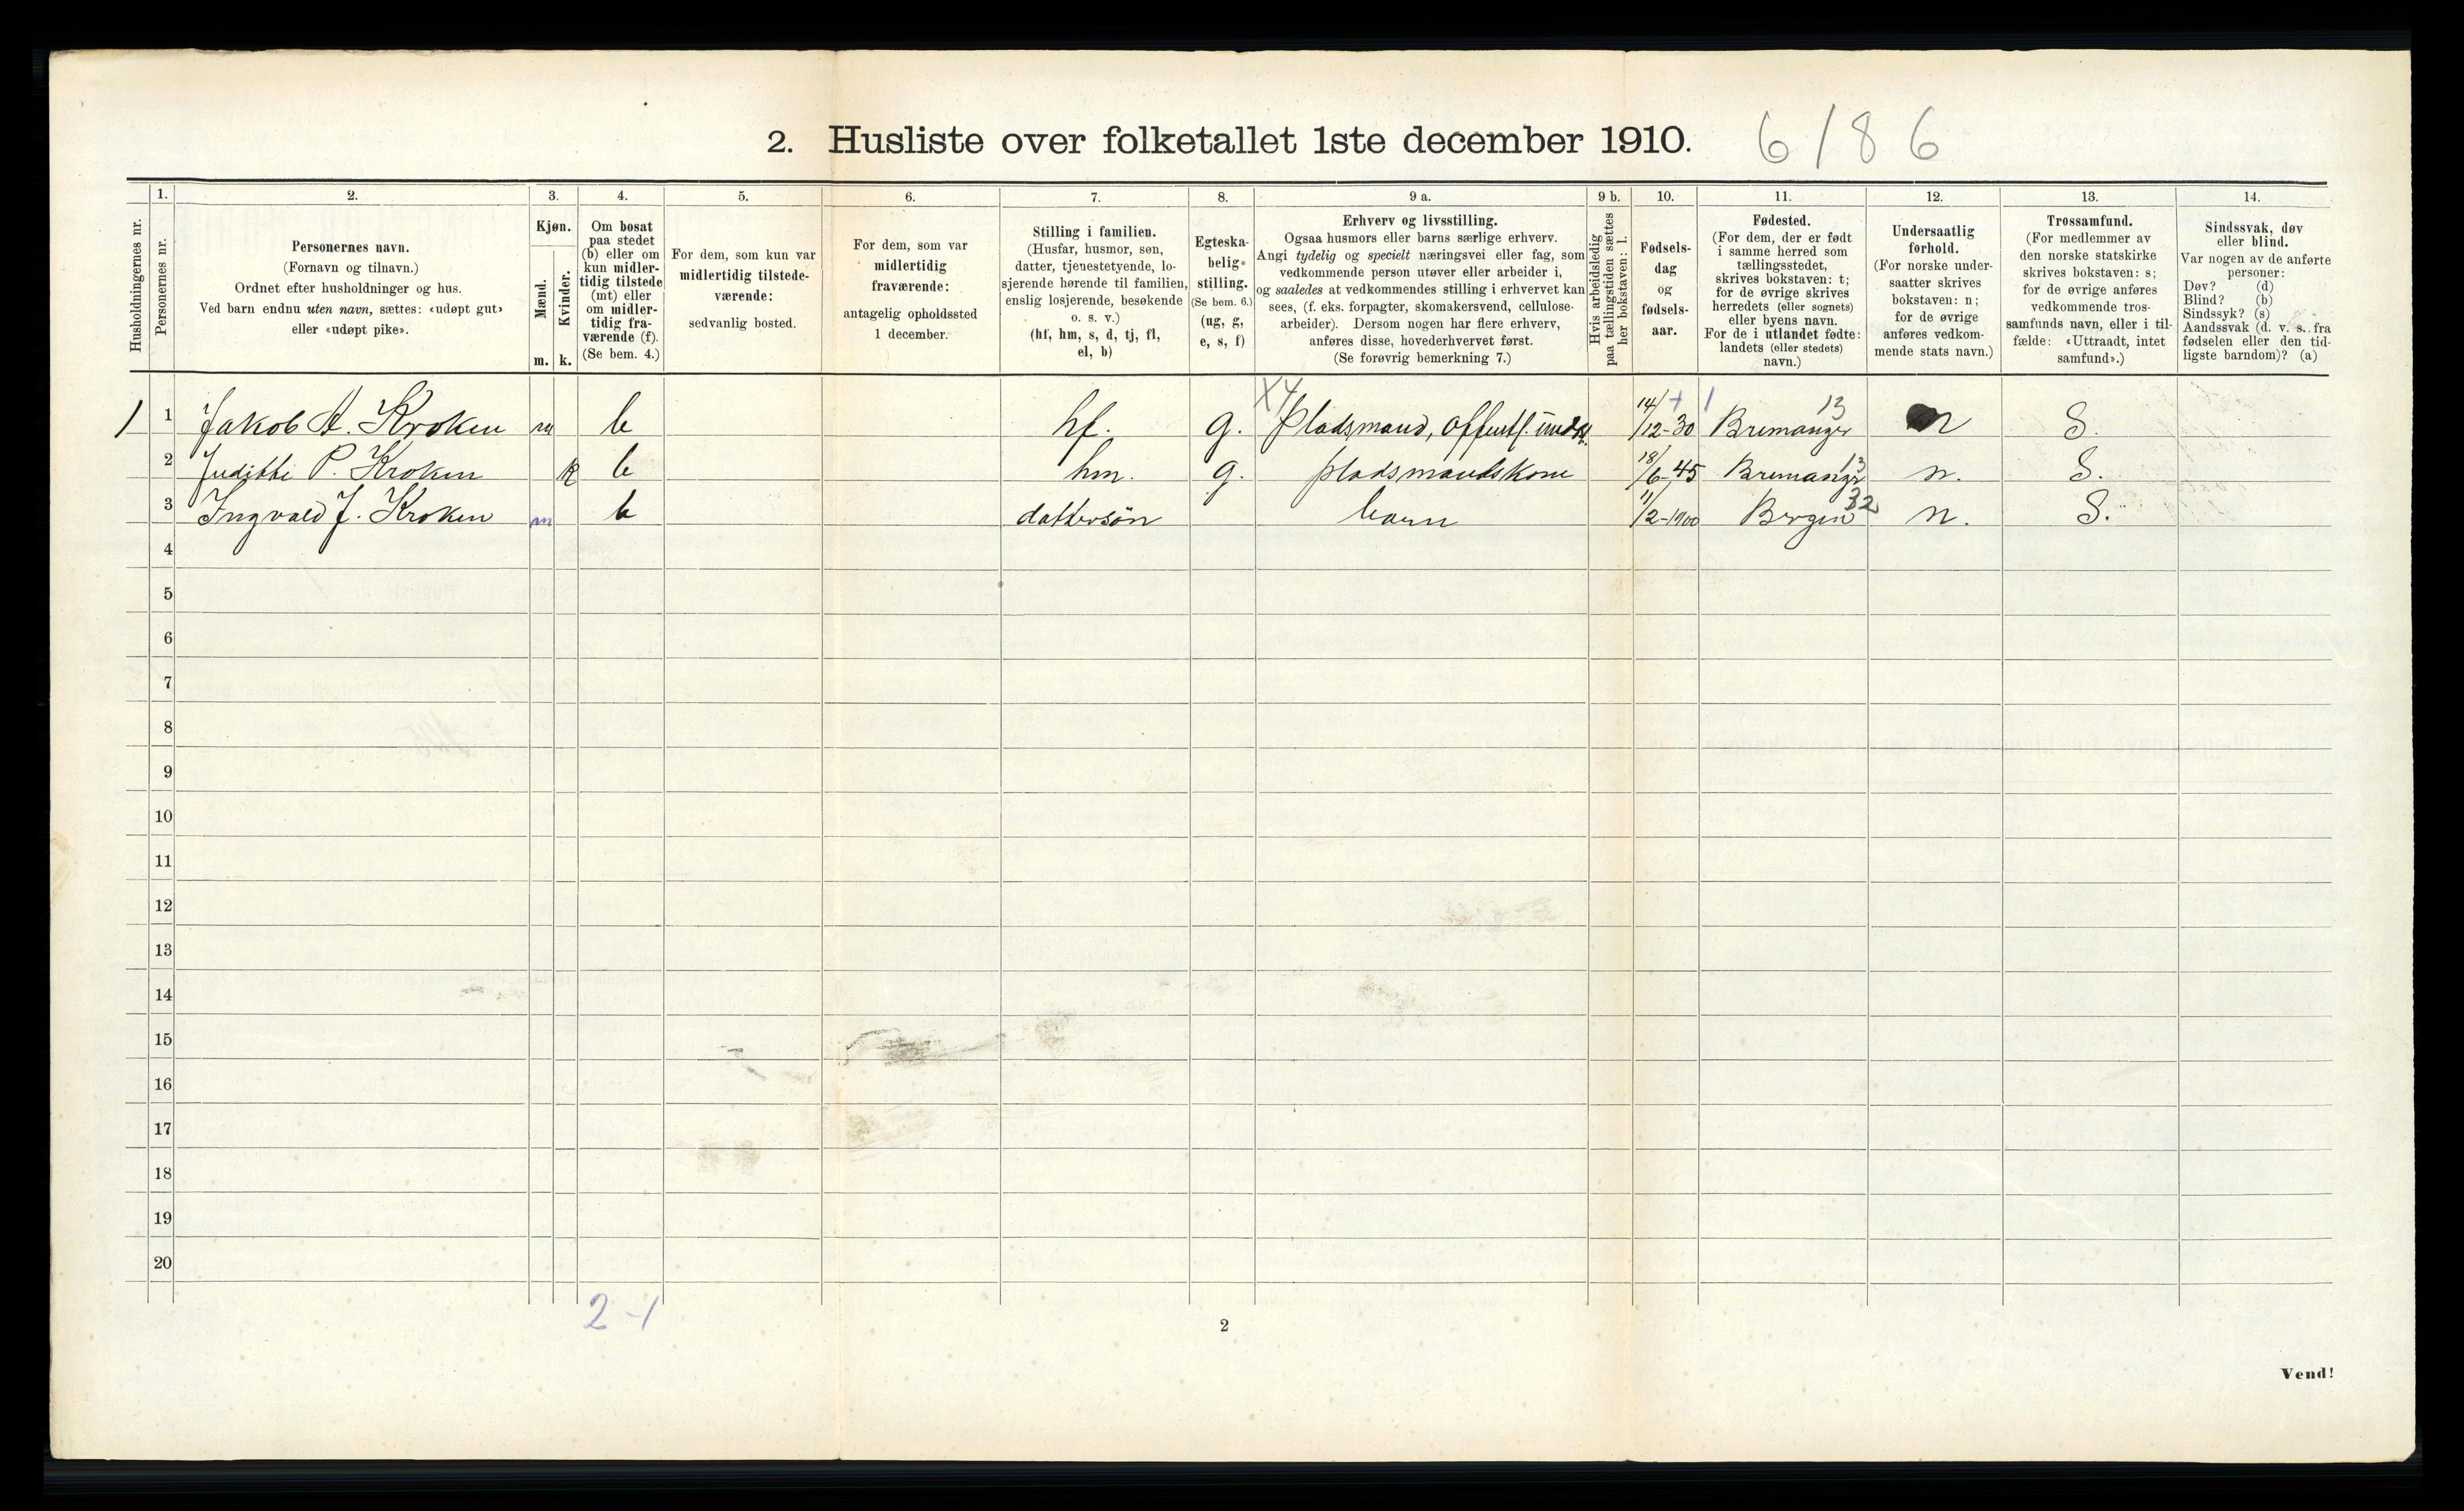 2. Husliste over folketallet 1ste december 1910. 6/86
Husholdningernes nr.
1.
Personernes nr.
2.
Personernes navn.
(Fornavn og tilnavn.)
Ordnet efter husholdninger og hus.
Ved barn endnu uten navn, sættes: «udøpt gut»
eller «udøpt pike».
3.
Kjøn.
Mænd.
Kvinder.
m. k.
4.
Om bosat
paa stedet
(b) eller om
kun midler-
tidig tilstede
(mt) eller
om midler-
tidig fra-
værende (f).
(Se bem. 4.)
5.
For dem, som kun var
midlertidig tilstede-
værende:
sedvanlig bosted.
6.
For dem, som var
midlertidig
fraværende:
antagelig opholdssted
1 december.
7.
Stilling i familien.
(Husfar, husmor, søn,
datter, tjenestetyende, lo-
sjerende hørende til familien,
enslig losjerende, besøkende
o. s. v.)
(hf, hm, s, d, tj, fl,
el, b)
8.
Egteska-
belig
stilling.
(Se bem. 6.)
(ug, g,
e, s, f)
9 a.
Erhverv og livsstilling.
Ogsaa husmors eller barns særlige erhverv.
Angi tydelig og specielt næringsvei eller fag, som
vedkommende person utøver eller arbeider i,
og saaledes at vedkommendes stilling i erhvervet kan
sees, (f. eks. forpagter, skomakersvend, cellulose-
arbeider). Dersom nogen har flere erhverv,
anføres disse, hovederhvervet først.
(Se forøvrig bemerkning 7.)
9 b.
Hvis arbeidsledig
paa tællingstiden sættes
her bokstaven: l.
10.
Fødsels-
dag
og
fødsels-
aar.
11.
Fødested.
(For dem, der er født
i samme herred som
tællingsstedet,
skrives bokstaven: t;
for de øvrige skrives
herredets (eller sognets)
eller byens navn.
For de i utlandet fødte:
landets (eller stedets)
navn.)
12.
Undersaatlig
forhold.
(For norske under-
saatter skrives
bokstaven: n;
for de øvrige
anføres vedkom-
mende stats navn.)
13.
Trossamfund.
(For medlemmer av
den norske statskirke
skrives bokstaven: s;
for de øvrige anføres
vedkommende tros-
samfunds navn, eller i til-
fælde: «Uttraadt, intet
samfund».)
14.
Sindssvak, døv
eller blind.
Var nogen av de anførte
personer:
Døv? (d)
Blind? (b)
Sindssyk? (s)
Aandssvak (d. v. s. fra
fødselen eller den tid-
ligste barndom)? (a)
X4 13
1 1 Jakob A. Kroken m b hf. g. Pladsmand, offentl. 14/12-30 Bremanger n S.
2 Judithe P. Kroken k b hm. g. pladsmandskone 18/6-45 Bremanger 13 n. S.
3 Ingvald J. Kroken m b dattersøn barn 11/2-1900 Bergen 32 n. S.
4
5
6
7
8
9
10
11
12
13
14
15
16
17
18
19
20
2-1
2
Vend!